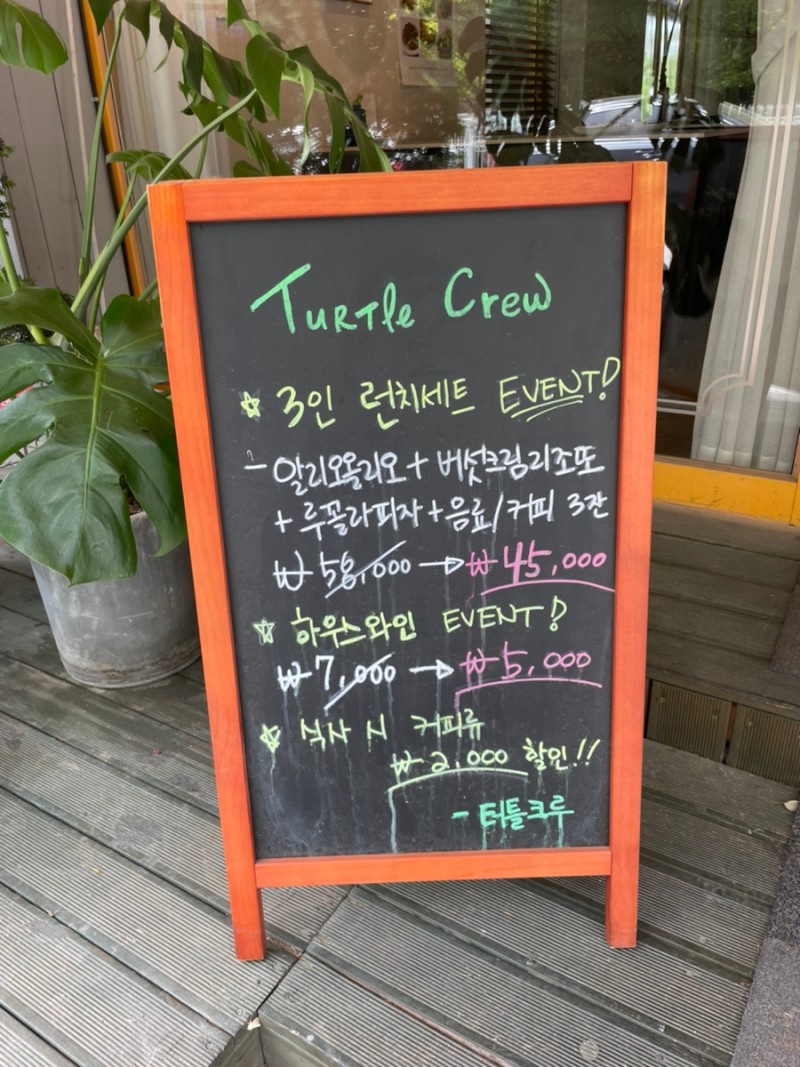 Turtle Crew
☆ 3인 런치세트 EVENT!
- 알리오올리오 + 버섯크림리조또
+ 루꼴라피자 + 음료/커피 3잔
₩ 58,000 → ₩ 45,000
☆ 하우스와인 EVENT!
₩ 7,000 → ₩ 5,000
☆ 식사 시 커피류
₩ 2,000 할인!!
- 터틀크루